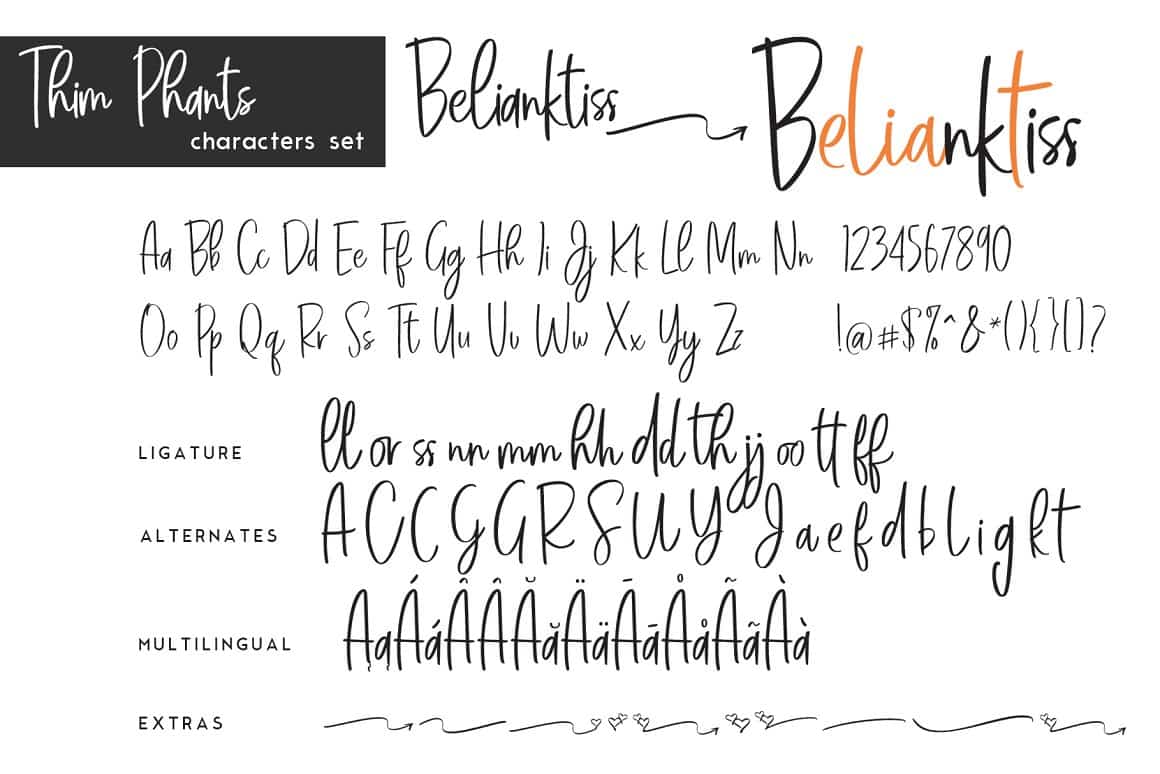 Thim Phants
characters set
Belianktiss
Belianktiss
Aa Bb Cc Dd Ee Ff Gg Hh Ii Jj Kk Ll Mm Nn 1234567890
Oo Pp Qq Rr Ss Tt Uu Vv Ww Xx Yy Zz !@#$%^&*(){}[]?
LIGATURE ll or ss nn mm hh dd th jj oo tt ff
ALTERNATES A C C G G R S U Y J a e f d b l i g k t
MULTILINGUAL ĄąÁáÂÂĂăÄäĀāÅåÃãÀà
EXTRAS